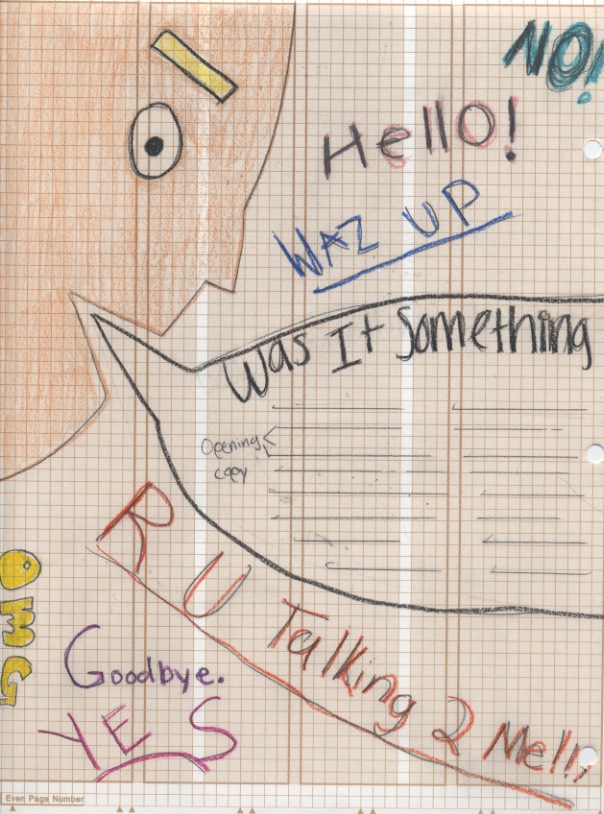 NO!
Hello!
WAZ UP
Was It Something
Opening
copy
R U Talking 2 Me!!!
OMG
Goodbye.
YES
Even Page Number